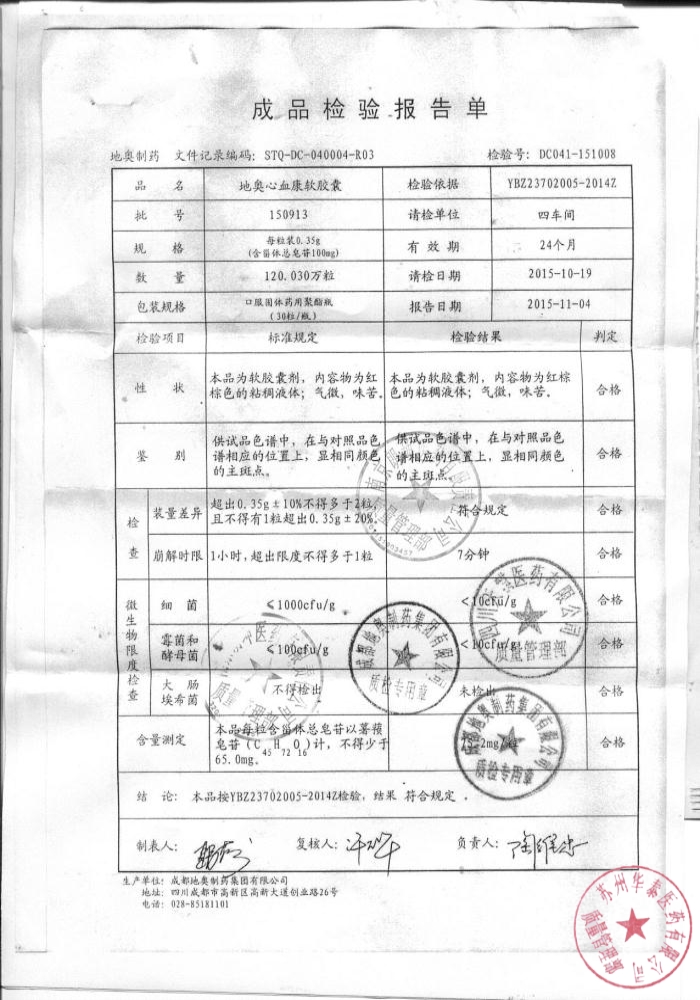 成品检验报告单
地奥制药 文件记录编码: STQ-DC-040004-R03 检验号: DC041-151008
品 名 地奥心血康软胶囊 检验依据 YBZ23702005-2014Z
批 号 150913 请检单位 四车间
规 格 每粒装0.35g 有 效 期 24个月
(含甾体总皂苷100mg)
数 量 120.030万粒 请检日期 2015-10-19
包装规格 口服固体药用聚酯瓶 报告日期 2015-11-04
(30粒/瓶)
检验项目 标准规定 检验结果 判定
性 状 本品为软胶囊剂，内容物为红 本品为软胶囊剂，内容物为红棕 合格
棕色的粘稠液体；气微，味苦。 色的粘稠液体；气微，味苦。
鉴 别 供试品色谱中，在与对照品色 供试品色谱中，在与对照品色 合格
谱相应的位置上，显相同颜色 谱相应的位置上，显相同颜色
的主斑点。 的主斑点。
检查 装量差异 超出0.35g±10%不得多于2粒， 符合规定 合格
且不得有1粒超出0.35g±20%。
崩解时限 1小时,超出限度不得多于1粒 7分钟 合格
微生物限度检查 细 菌 ≤1000cfu/g <10cfu/g 合格
霉菌和 ≤100cfu/g <10cfu/g 合格
酵母菌
大 肠 不得检出 未检出 合格
埃希菌
含量测定 本品每粒含甾体总皂苷以薯蓣 合格
皂苷(C45H72O16)计，不得少于
65.0mg。
结 论: 本品按YBZ23702005-2014Z检验,结果 符合规定 。
制表人: 复核人: 负责人:
生产单位: 成都地奥制药集团有限公司
地址: 四川成都市高新区高新大道创业路26号
电话: 028-85181101
医药有限公司
质量管理部
成都地奥制药集团有限公司
质检专用章
成都地奥制药集团有限公司
质检专用章
质量管理部
苏州华泰医药有限公司
质量管理部